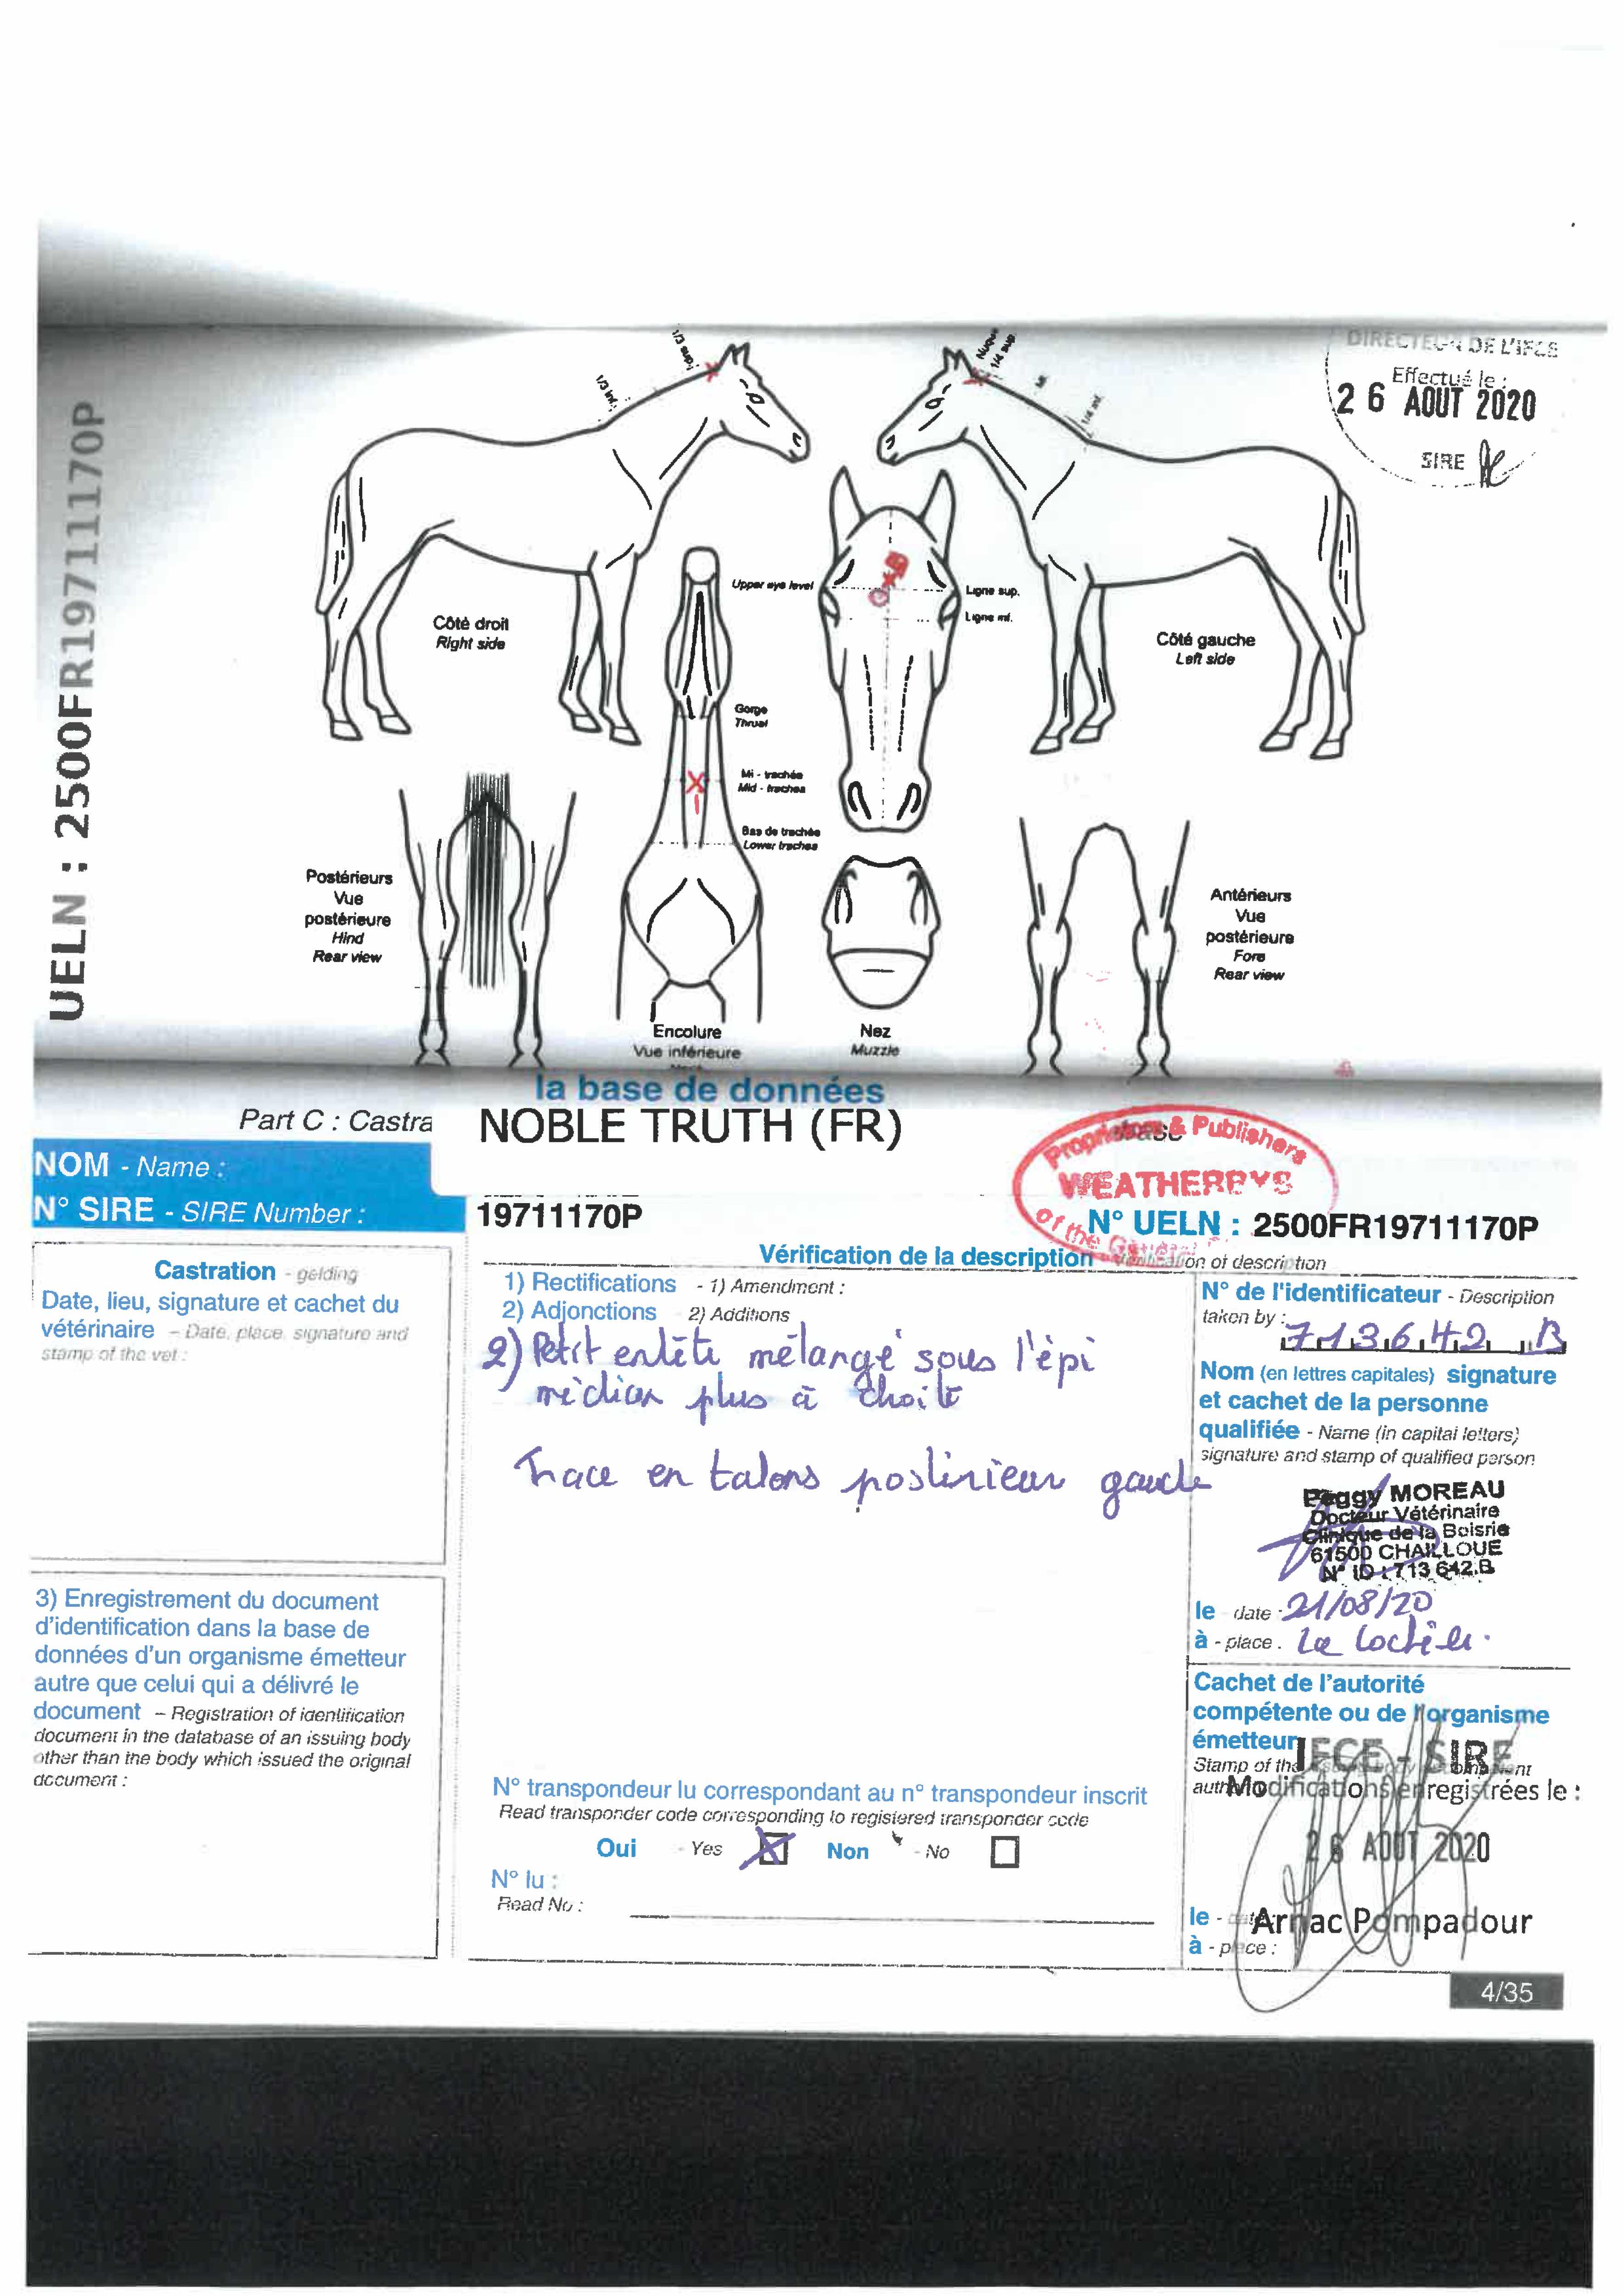 UELN : 2500FR19711170P
DIRECTEUR DE L'IFCE
Effectué le :
26 AOUT 2020
SIRE
1/3 sup.
1/3 inf.
Nuque
1/4 sup.
Mi
1/4 inf.
Côté droit
Right side
Upper eye level
Ligne sup.
Ligne inf.
Côté gauche
Left side
Gorge
Throat
Mi - trachée
Mid - trachea
Bas de trachée
Lower trachea
Postérieurs
Vue
postérieure
Hind
Rear view
Antérieurs
Vue
postérieure
Fore
Rear view
Encolure
Vue inférieure
Nez
Muzzle
la base de données
Part C : Castra
NOBLE TRUTH (FR)
Proprietors & Publishers
WEATHERBYS
of the General
NOM - Name :
N° SIRE - SIRE Number :
19711170P
N° UELN : 2500FR19711170P
Vérification de la description - Verification of description
Castration - gelding
Date, lieu, signature et cachet du
vétérinaire - Date, place, signature and
stamp of the vet :
1) Rectifications - 1) Amendment :
2) Adjonctions 2) Additions
2) Petit entête mélangé sous l'épi
médian plus à droite
Trace en talons postérieur gauche
N° de l'identificateur - Description
taken by :
713642 B
Nom (en lettres capitales) signature
et cachet de la personne
qualifiée - Name (in capital letters)
signature and stamp of qualified person
Peggy MOREAU
Docteur Vétérinaire
Clinique de la Boisrie
61500 CHAILLOUE
N° ID : 713 642.B
le date : 21/08/20
à - place . La
3) Enregistrement du document
d'identification dans la base de
données d'un organisme émetteur
autre que celui qui a délivré le
document – Registration of identification
document in the database of an issuing body
other than the body which issued the original
document :
Cachet de l'autorité
compétente ou de l'organisme
émetteur
Stamp of the
IFCE - SIRE
Modifications enregistrées le :
26 AOUT 2020
le - date
Arnac Pompadour
à - place :
N° transpondeur lu correspondant au n° transpondeur inscrit
Read transponder code corresponding to registered transponder code
Oui - Yes Non - No
N° lu :
Read No :
4/35